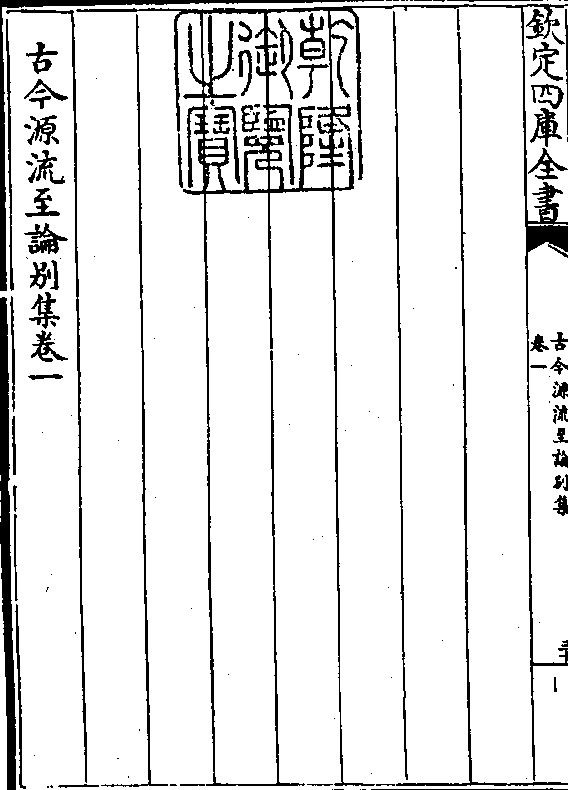 欽定四庫全書
古今源流至論別集
卷一
乾隆御覽之寶
古今源流至論別集卷一